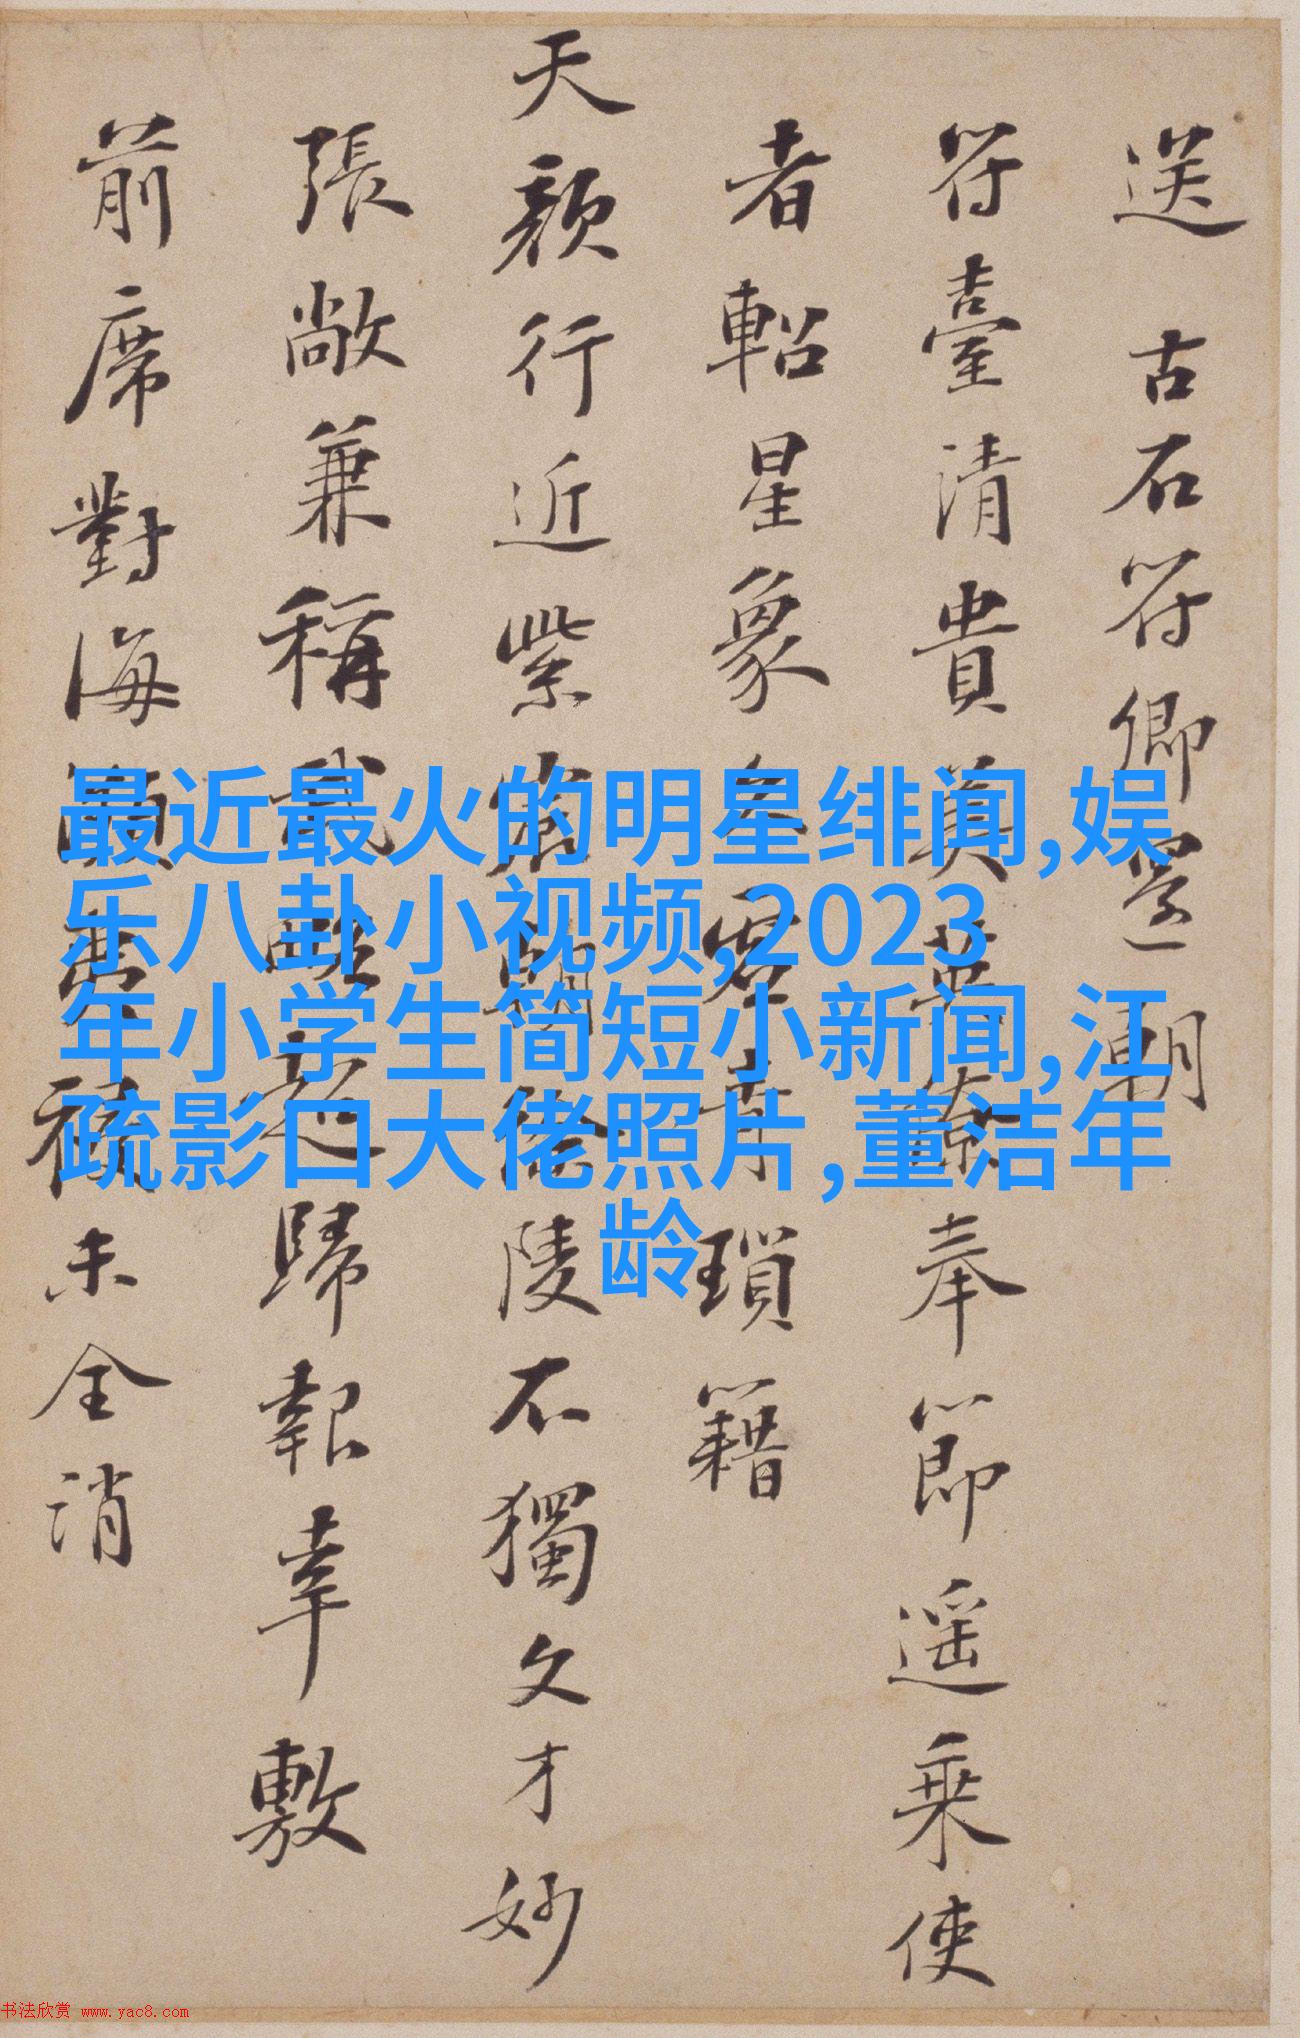 送 古石符卿還朝
符臺清貴英奉節遥乗使
者軺星象青瑣籍
天顔行近紫宸朝徐陵不獨文才妙
張敞兼稱武略超歸報幸敷
前席對海夷祲未全消
最近最火的明星绯闻,娱
乐八卦小视频,2023
年小学生简短小新闻,江
疏影口大佬照片,董洁年
龄
书法欣赏 www.yac8.com